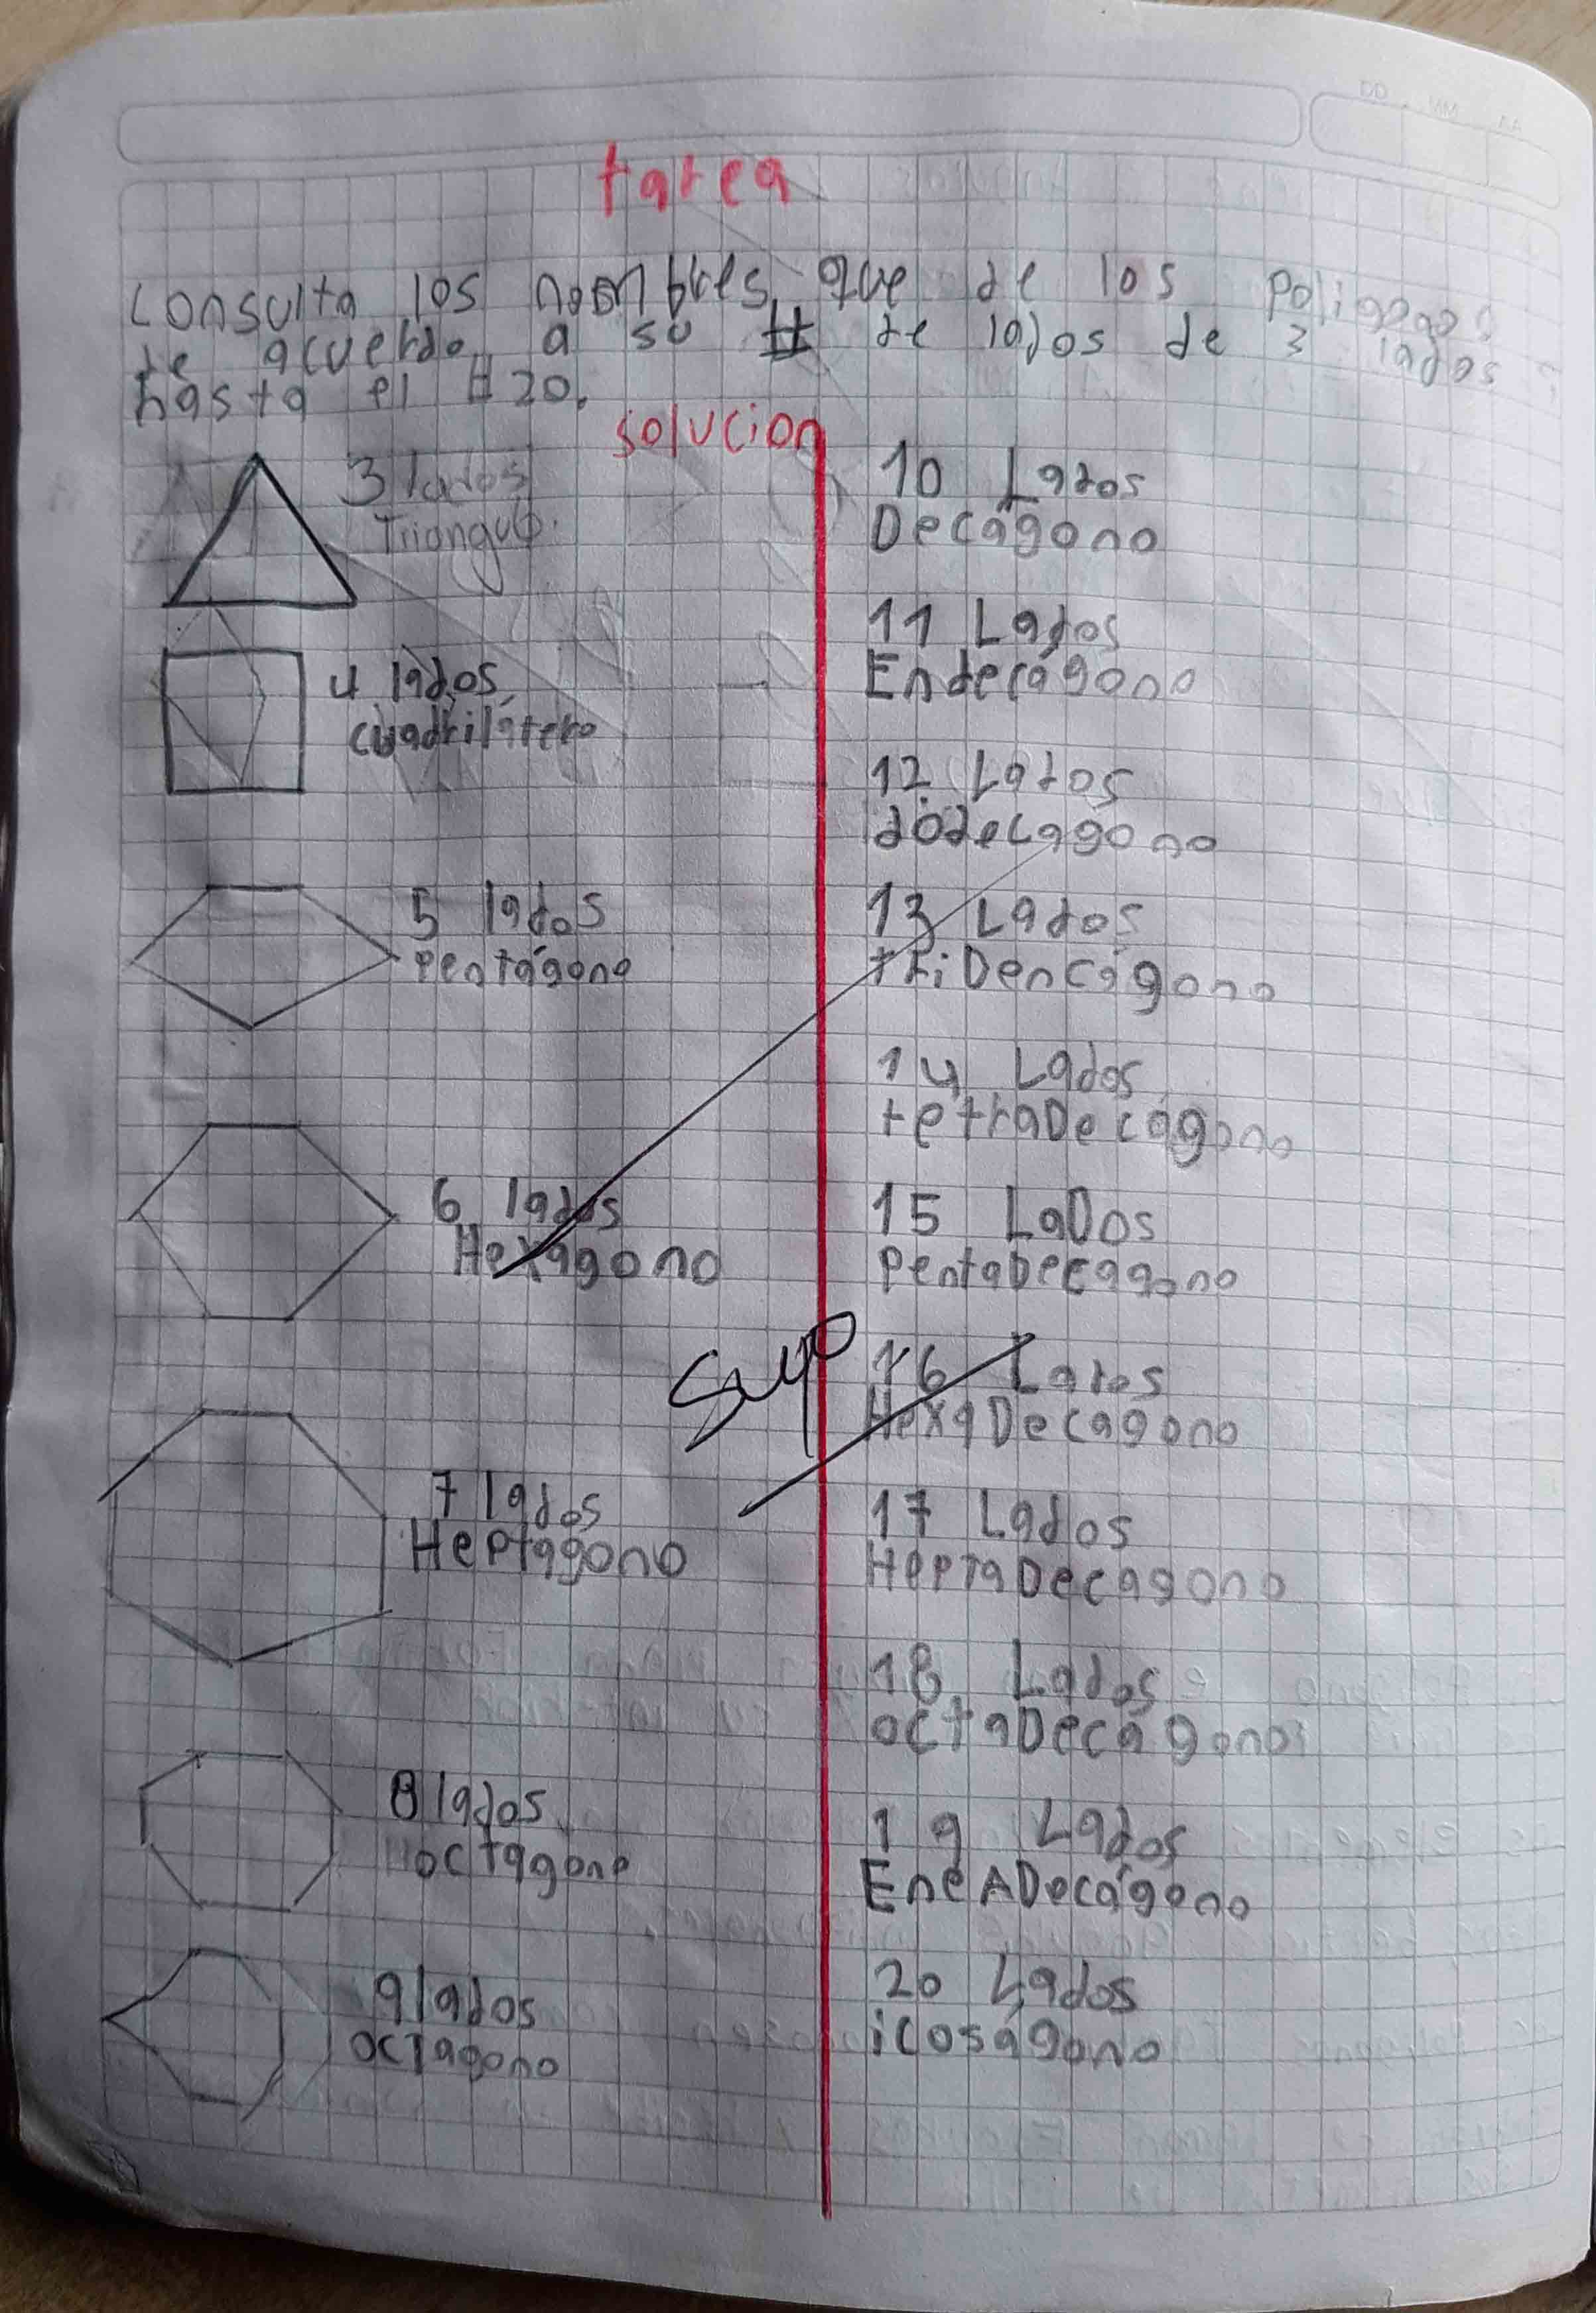 DD MM AA
tarea
Consulta los noombres que de los poligonos
de acuerdo a su # de lados de 3 lados
hasta el #20.
solucion
3 lados
Triangulo.
4 lados
cuadrilátero
5 lados
pentágono
6 lados
Hexágono
7 lados
Heptágono
8 lados
octágono
9 lados
octagono
10 Lados
Decágono
11 Lados
Endecágono
12 Lados
dodecagono
13 Lados
triDencágono
14 Lados
tetraDecágono
15 LaDos
PentaDecagono
16 Lados
HexaDecagono
17 Lados
HeptaDecagono
18 Lados
octaDecágono
19 Lados
EneADecágono
20 Lados
icoságono